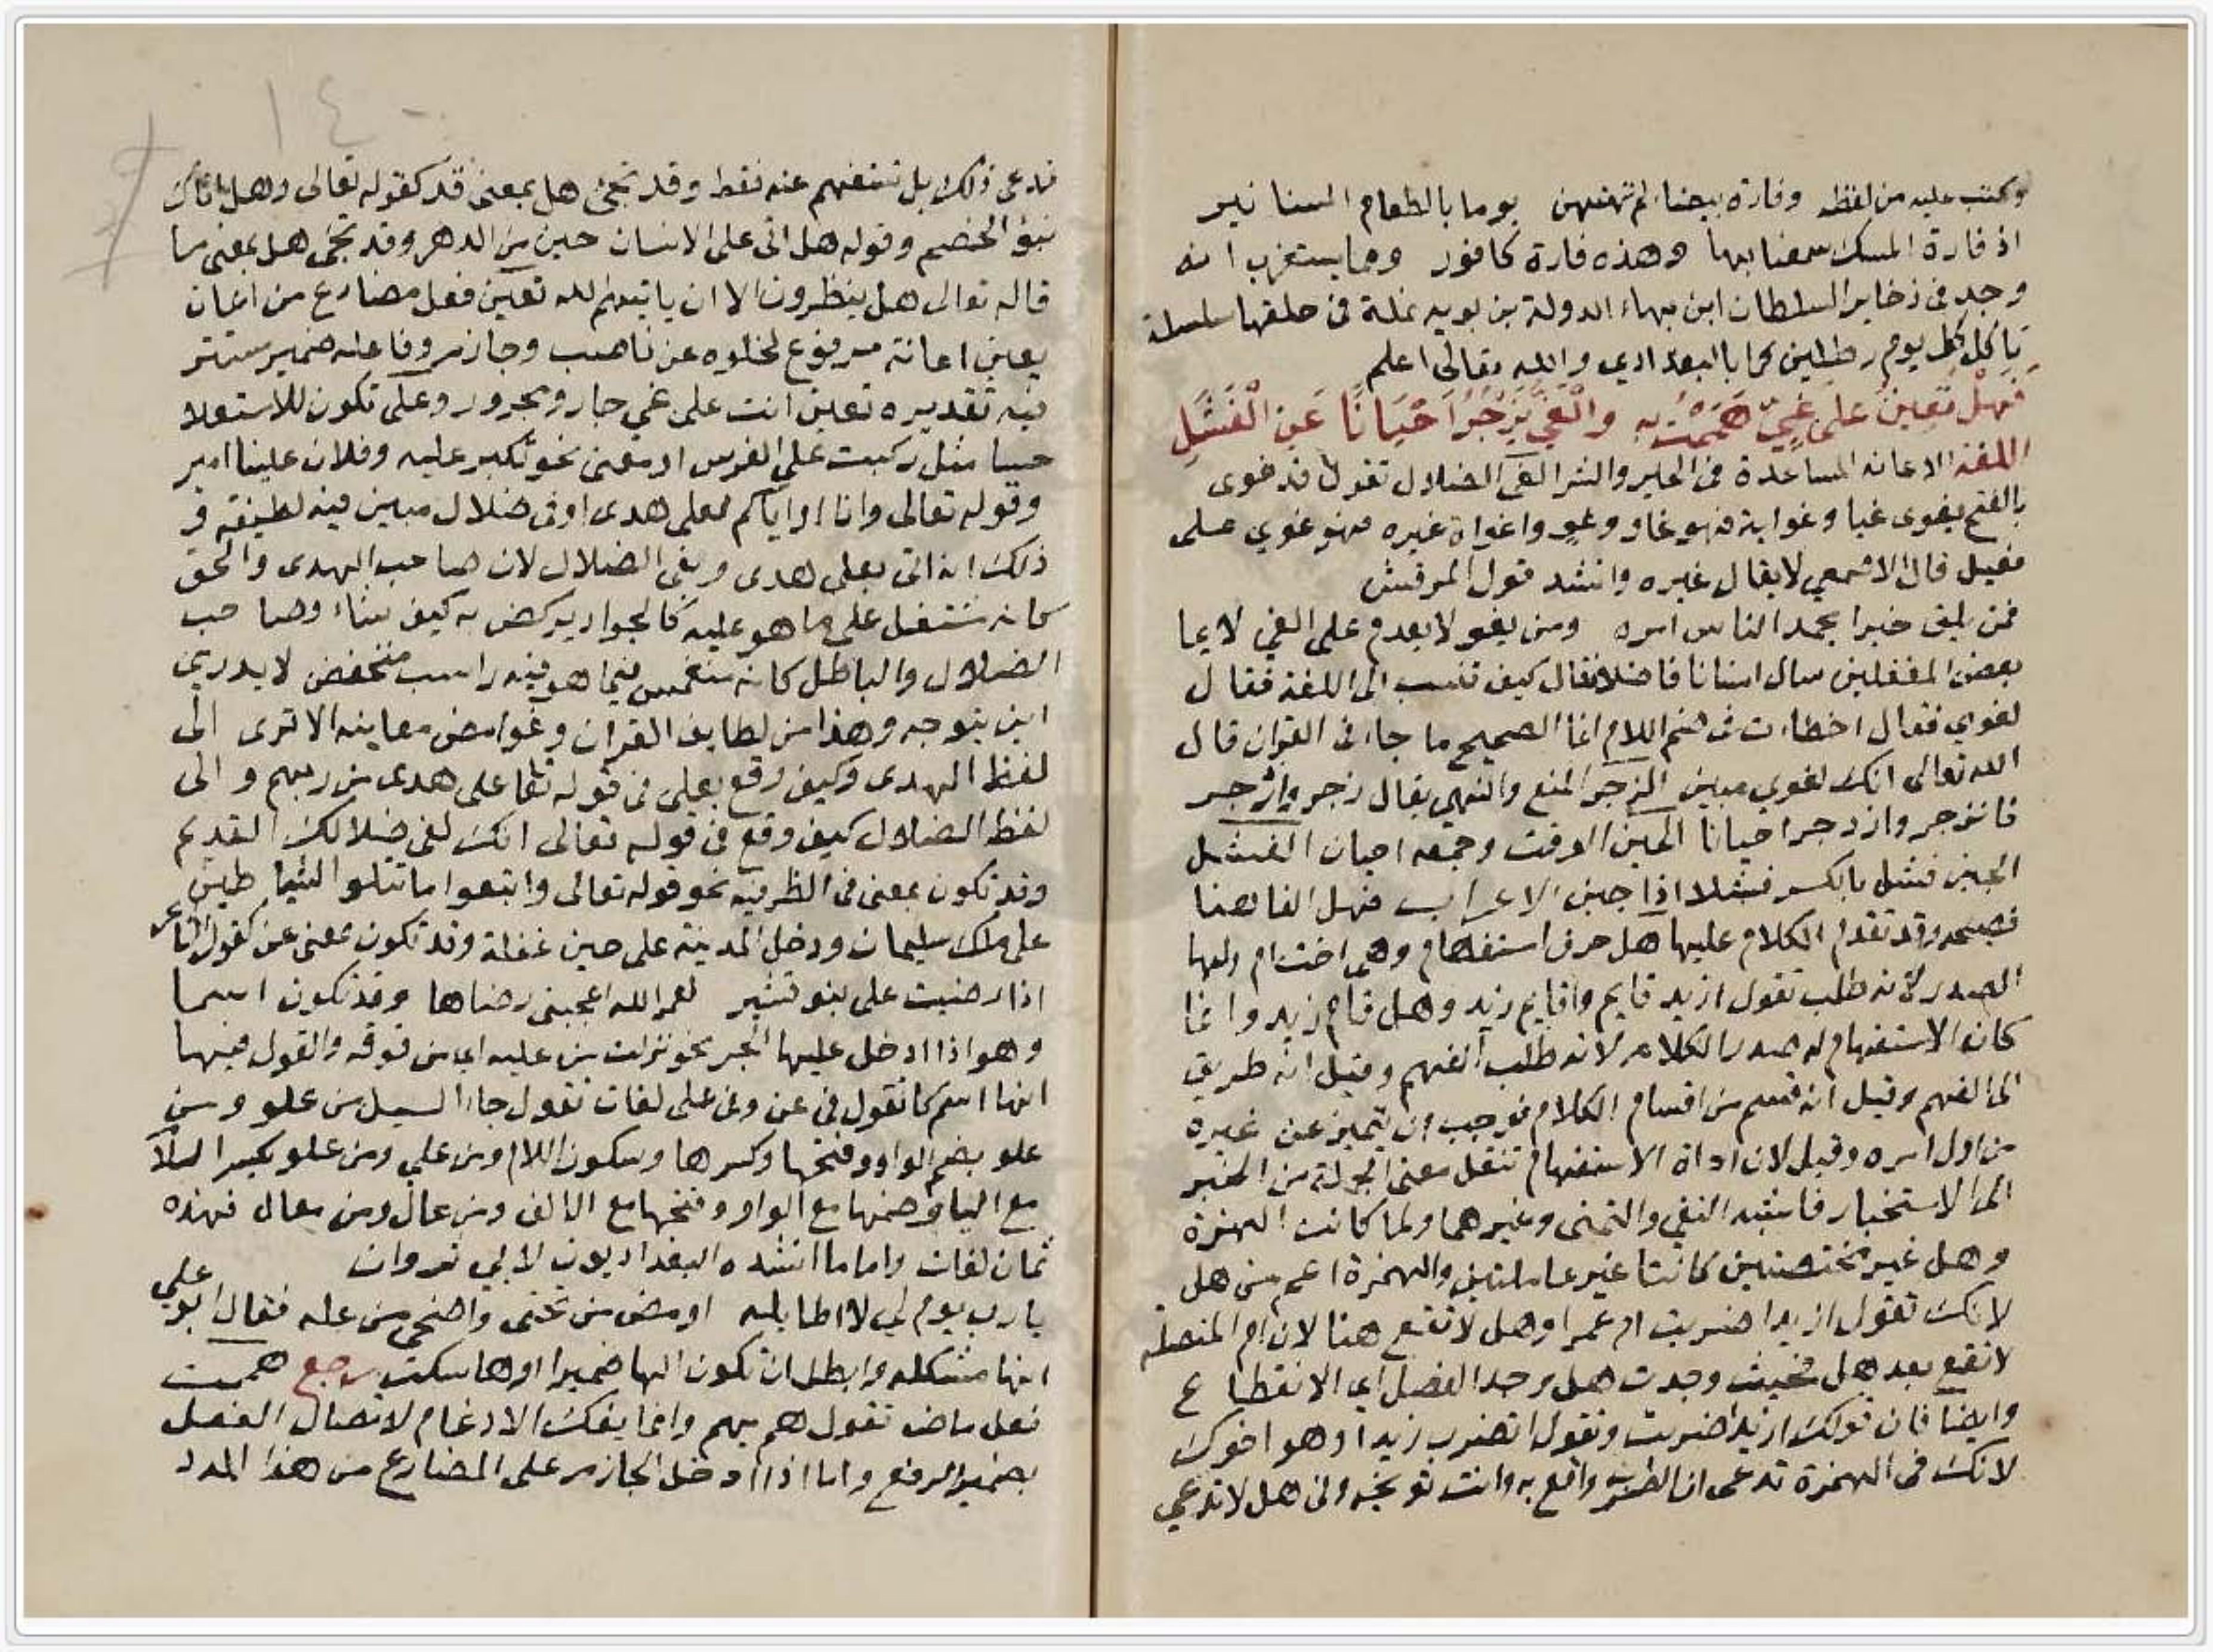 وكتب عليه من لفظه وفارة بيضاء لم تمتهن يوما بالطعام السنا نير
اذ فارة المسك سمعنا بها وهذه فارة كافور ومما يستغرب انه
وجد فى ذخاير السلطان ابن بهاء الدولة بن بويه نملة فى حلقها سلسلة
تاكل كل يوم رطلين لحما بالبغدادي والله تعالى اعلم
فَهَلْ تُعِينُ على غَيٍّ هَمَمْتُ بِهِ والْغَيُّ يَزْجُرُ اَحْيَانًا عَنِ الْفَشَلِ
اللغة الاعانه المساعدة فى الخير والشر الغى الضلال تقول قد غوى
بالفتح يغوى غيا وغواية فهو غاو وغو واغواه غيره فهو غوي على
فعيل قال الاصمعي لا يقال غيره وانشد قول المرقش
فمن يلق خيرا يحمد الناس امره ومن يغو لا يعدم على الغي لايما
بعض المغفلين سال انسانا فاضلا فقال كيف تنسب الى اللغة فقال
لغوي فقال اخطات فى ضم اللام انما الصحيح ما جاء فى القران قال
الله تعالى انك لغوي مبين الزجر المنع والنهي يقال زجر وازدجر
فانزجر وازدجر احيانا الحين الوقت وجمعه احيان الفشل
الجبن فشل بالكسر فشلا اذا جبن الاعراب فهل الفا هنا
فصيحه وقد تقدم الكلام عليها هل حرف استفهام وهى اخت ام ولها
الصدر لانه طلب تقول ازيد قايم واقايم زيد وهل قام زيد وانما
كان الاستفهام له صدر الكلام لانه طلب الفهم وقيل انه طريق
الى الفهم وقيل انه قسم من اقسام الكلام فوجب ان يتميز عن غيره
من اول امره وقيل لان اداة الاستفهام تنقل معنى الجملة من الخبر
الى الاستخبار فاشبه النفي والتمنى وغيرهما ولما كانت الهمزة
وهل غير مختصتين كانتا غير عاملتين والهمزة اعم من هل
لانك تقول ازيدا ضربت ام عمرا وهل لا تقع هنا لان ام المتصلة
لا تقع بعد هل فحيث وجدت هل وجد الفصل اي الانقطاع
وايضا فان قولك ازيدا ضربت وتقول اتضرب زيدا وهو اخوك
لانك فى الهمزة تدعى ان الضرب واقع به وانت توبخه وفى هل لا تدعي
تدعى ذلك بل تستفهم عنه فقط وقد تجئ هل بمعنى قد كقوله تعالى وهل اتاك
نبؤ الخصم وقوله هل اتى على الانسان حين من الدهر وقد تجئ هل بمعنى ما
قاله تعالى هل ينظرون الا ان ياتيهم الله تعين فعل مضارع من اعان
يعين اعانة مرفوع لخلوه عن ناصب وجازم وفاعله ضمير مستتر
فيه تقديره تعين انت على غي جار ومجرور وعلى تكون للاستعلا
حسا مثل ركبت على الفرس او معنى نحو تكبر عليه وفلان علينا امير
وقوله تعالى وانا او اياكم لعلى هدى او فى ضلال مبين فيه لطيفة فى
ذلك انه اتى بعلى هدى وبفى الضلال لان صاحب الهدى والحق
كانه مستعل على ما هو عليه كالجواد يركض به كيف شاء وصاحب
الضلال والباطل كانه منغمس فيما هو فيه راسب منخفض لا يدري
اين يتوجه وهذا من لطايف القران وغوامض معاينه الا ترى الى
لفظ الهدى وكيف وقع بعلى فى قوله تعا على هدى من ربهم والى
لفظ الضلال كيف وقع فى قوله تعالى انك لفى ضلالك القديم
وقد تكون بمعنى فى الظرفيه نحو قوله تعالى واتبعوا ما تتلوا الشياطين
على ملك سليمان ودخل المدينة على حين غفلة وقد تكون بمعنى عن كقول الشاعر
اذا رضيت على بنو قشير لعمر الله اعجبنى رضاها وقد تكون اسما
وهو اذا ادخل عليها الجر نحو نزلت من عليه اي من فوقه والقول فيها
انها اسم كما تقول فى عن وفى على لغات تقول جاء السيل من علو ومن
علو بضم الواو وفتحها وكسرها وسكون اللام ومن علي ومن علو بكسر اللام
مع اليا وضمها مع الواو وفتحها مع الالف ومن عال ومن معال فهذه
ثمان لغات واما ما انشده البغداديون لابي ثروان
يا رب يوم لي لا اظلله ارمض من تحتى واضحى من عله فقال ابو علي
انها مشكله وابطل ان تكون الها ضميرا او ها سكت رجع هممت
فعل ماض تقول هم يهم وانما يفك الادغام لاتصال الفعل
بضمير الرفع واما اذا ادخل الجازم على المضارع من هذا المدد